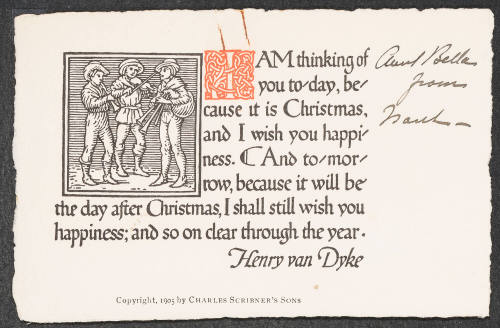 I AM thinking of
you to-day, be-
cause it is Christmas,
and I wish you happi-
ness. ¶ And to-mor-
row, because it will be
the day after Christmas, I shall still wish you
happiness; and so on clear through the year.
Henry van Dyke
Copyright, 1905 by CHARLES SCRIBNER'S SONS
Aunt Bella
from